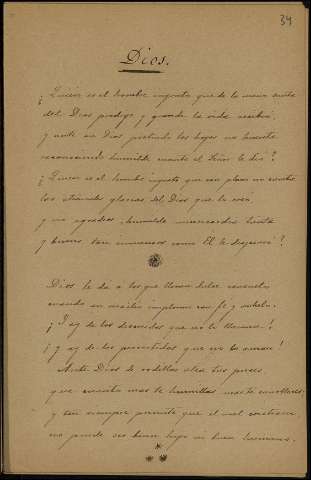 34
Dios.
¿Quién es el hombre ingrato que de la mano
del Dios pródigo y grande la vida recibió,
y ante un Dios postrado los hojos no levanta
reconociendo humilde cuanto el Señor le dió?
¿Quién es el hombre ingrato que con placer no canta
las glorias del Dios que le creó
y no agradece humilde misericordia tanta
y bienes tan inmensos como El le dispensó?
Dios le da a los que lloran dulce consuelo
cuando en su auxilio imploran con fé y anhelo.
¡Y ay de los descreidos que no le llaman!
¡y ay de los pervertidos que no le aman!
Ante Dios de rodillas alza tus preces,
que cuanto mas te humillas mas te enalteces
y aun siempre permite que el mal
no puede ser buen hijo ni buen hermano.